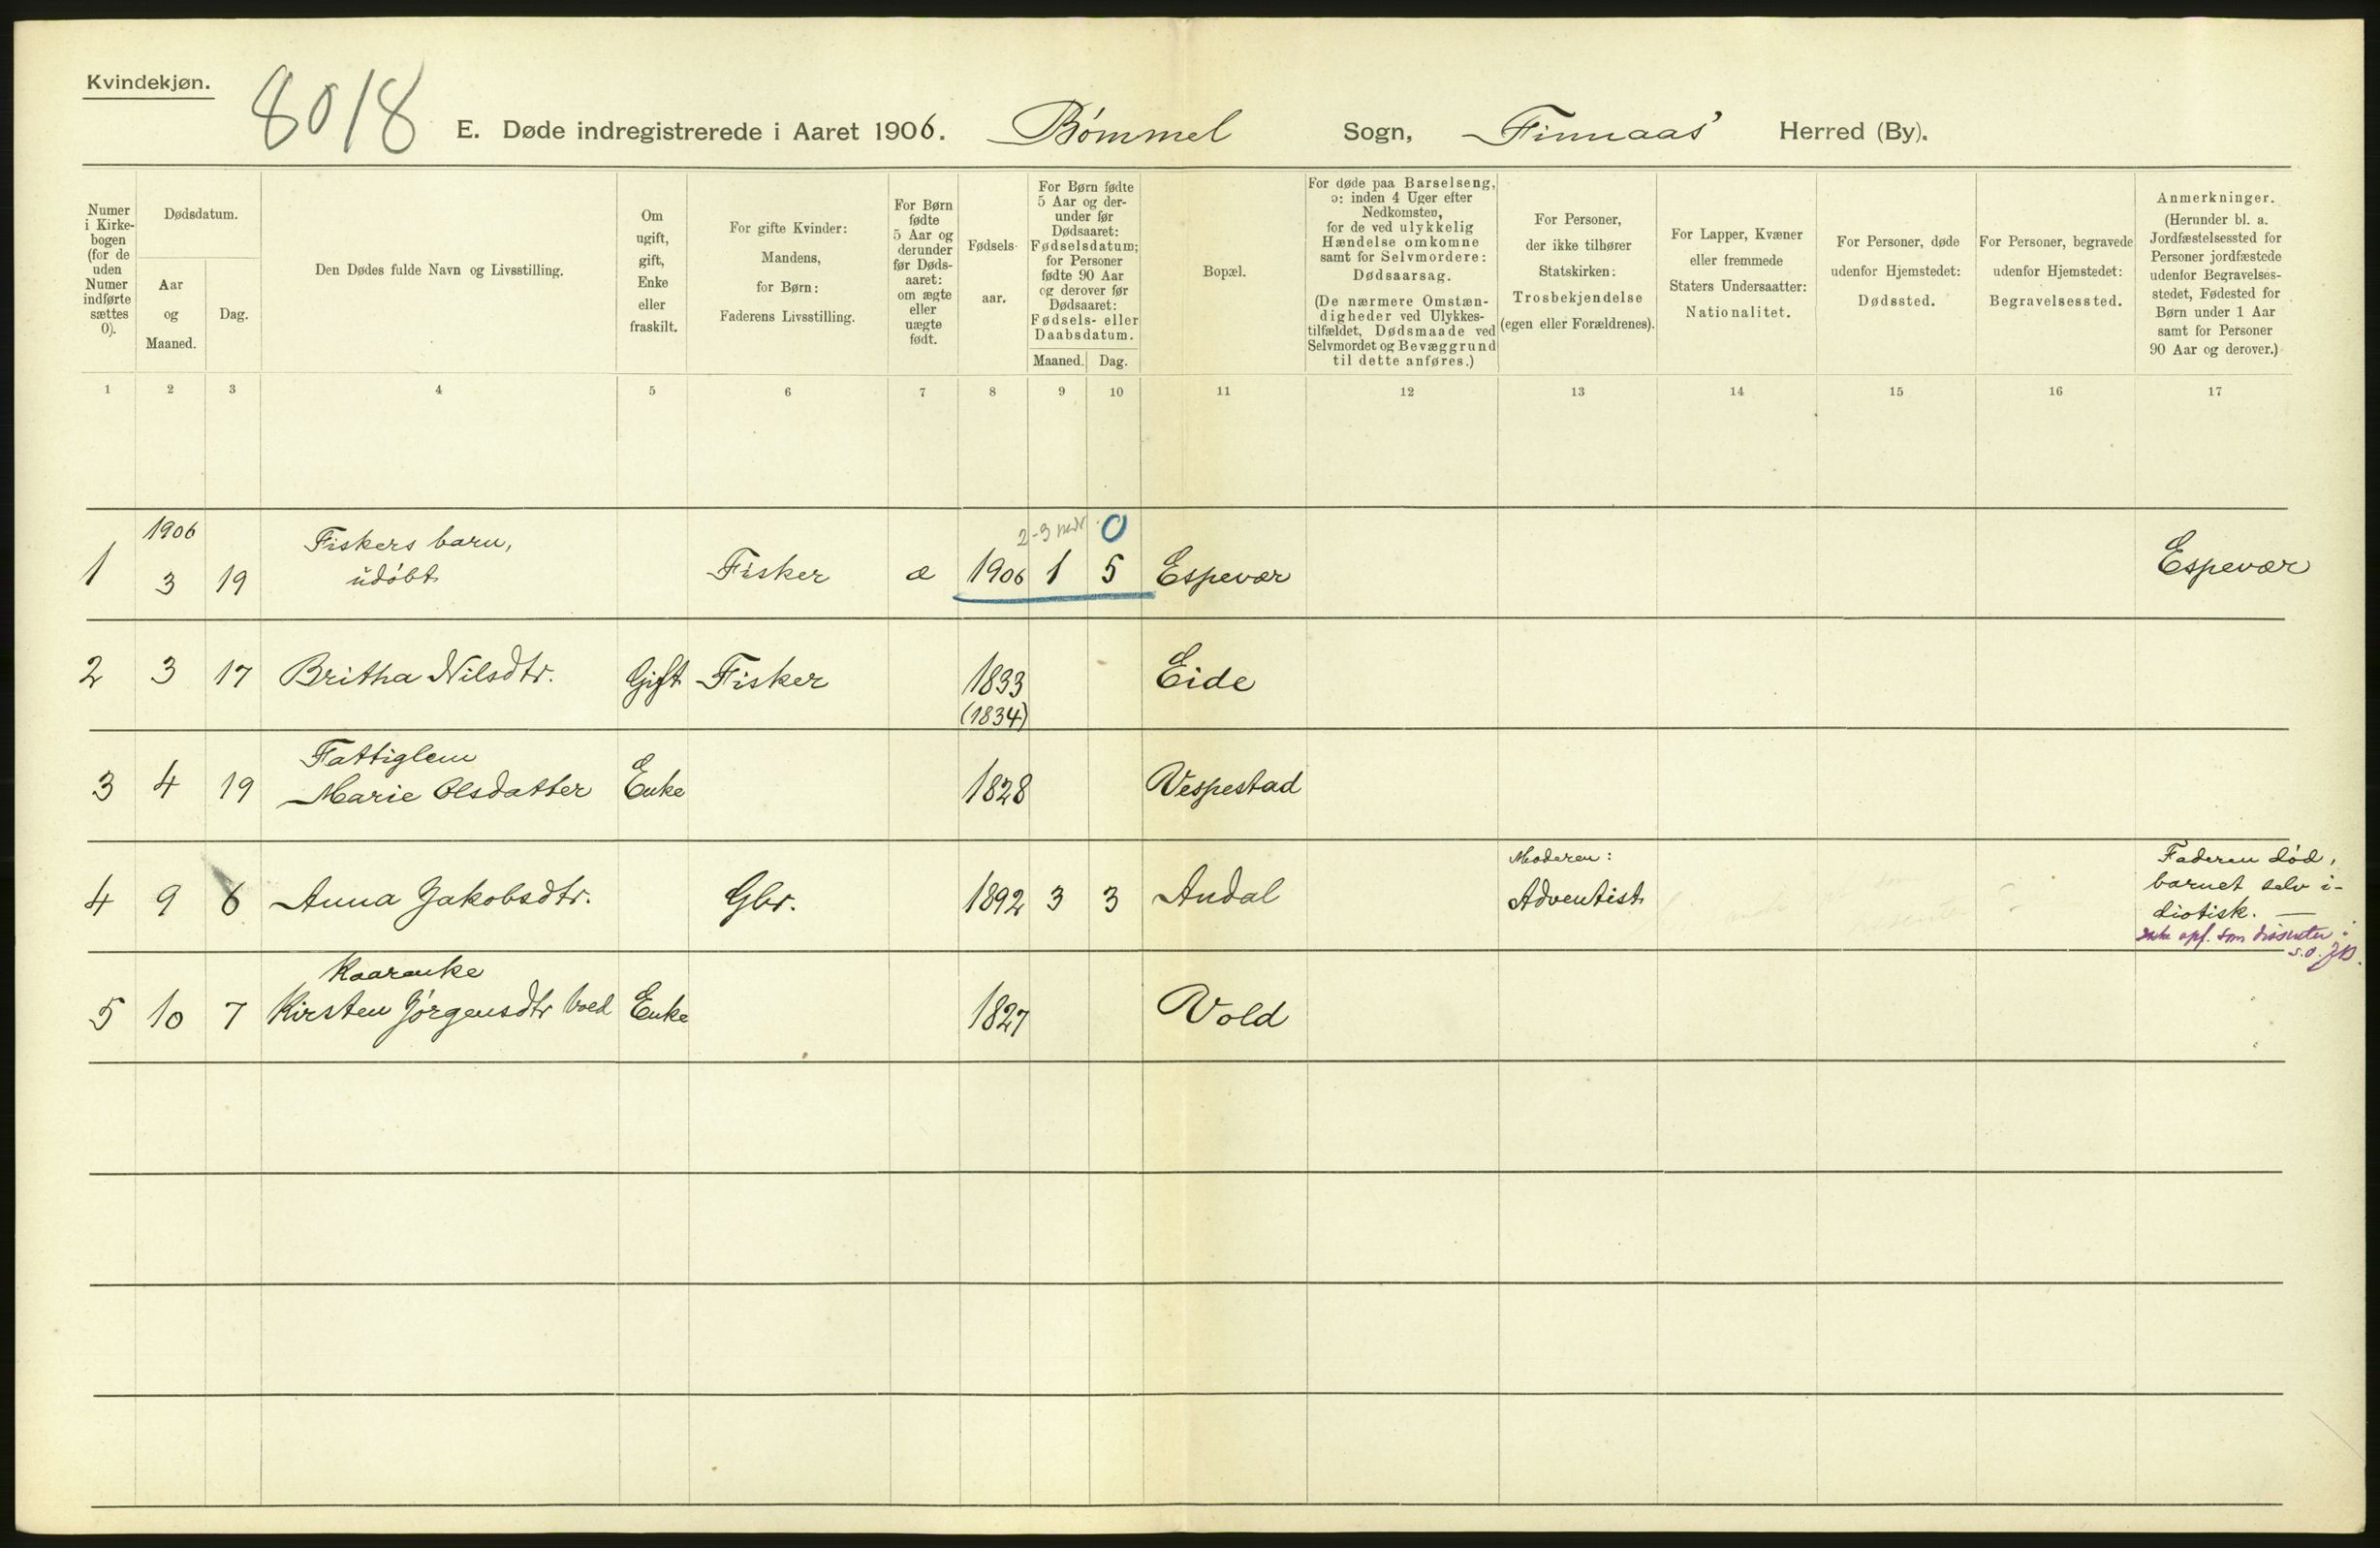 Kvindekjøn.
8018
E. Døde indregistrerede i Aaret 1906. Bømmel Sogn, Finnaas Herred (By).
Numer
i Kirke-
bogen
(for de
uden
Numer
indførte
sættes
0).
Dødsdatum.
Aar
og
Maaned.
Dag.
Den Dødes fulde Navn og Livsstilling.
Om
ugift,
gift,
Enke
eller
fraskilt.
For gifte Kvinder:
Mandens,
for Børn:
Faderens Livsstilling.
For Børn
fødte
5 Aar og
derunder
før Døds-
aaret:
om ægte
eller
uægte
født.
Fødsels-
aar.
For Børn fødte
5 Aar og der-
under før
Dødsaaret:
Fødselsdatum;
for Personer
fødte 90 Aar
og derover før
Dødsaaret:
Fødsels- eller
Daabsdatum.
Maaned. Dag.
Bopæl.
For døde paa Barselseng,
ɔ: inden 4 Uger efter
Nedkomsten,
for de ved ulykkelig
Hændelse omkomne
samt for Selvmordere:
Dødsaarsag.
(De nærmere Omstæn-
digheder ved Ulykkes-
tilfældet, Dødsmaade ved
Selvmordet og Bevæggrund
til dette anføres.)
For Personer,
der ikke tilhører
Statskirken:
Trosbekjendelse
(egen eller Forældrenes).
For Lapper, Kvæner
eller fremmede
Staters Undersaatter:
Nationalitet.
For Personer, døde
udenfor Hjemstedet:
Dødssted.
For Personer, begravede
udenfor Hjemstedet:
Begravelsessted.
Anmerkninger.
(Herunder bl. a.
Jordfæstelsessted for
Personer jordfæstede
udenfor Begravelses-
stedet, Fødested for
Børn under 1 Aar
samt for Personer
90 Aar og derover.)
1 2 3 4 5 6 7 8 9 10 11 12 13 14 15 16 17
1906
2-3 mdr 0
Fiskers barn,
1 3 19 udøbt Fisker æ 1906 1 5 Espevær Espevær
2 3 17 Britha Nilsdtr. Gift Fisker 1833 Eide
(1834)
Fattiglem
3 4 19 Marie Olsdatter Enke 1828 Vespestad
Moderen:
4 9 6 Anna Jakobsdtr. Gbr. 1892 3 3 Andal Adventist
Faderen død,
barnet selv i-
diotisk. —
opf. som dissenter i
s.o.
Kaarenke
5 10 7 Kirsten Jørgensdtr Vold Enke 1827 Vold